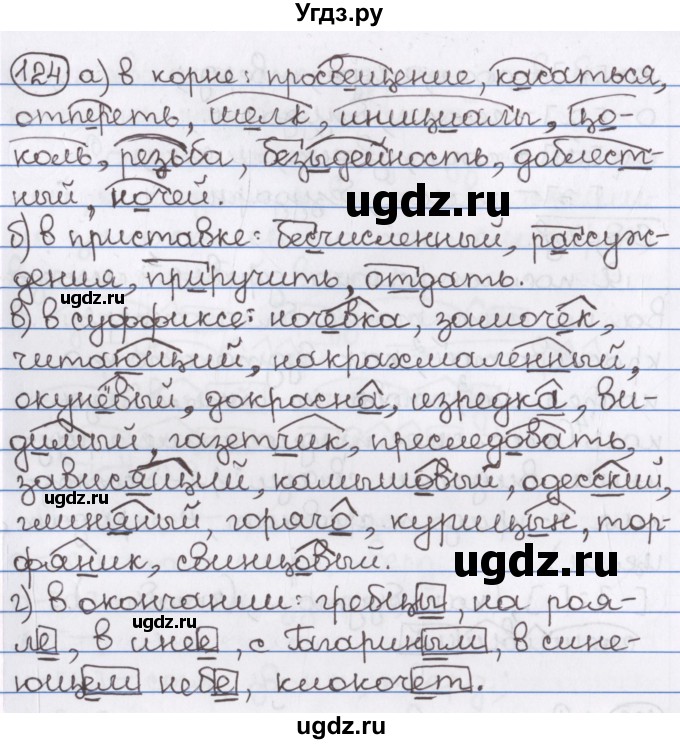 Угдз.ру
124 а) в корне: просвещение, касаться,
отпереть, шелк, инициалы, цо-
коль, резьба, безыдейность, доблест-
ный, ночей.
ugdz.ru
б) в приставке: бесчисленный, рассуж-
дения, приручить, отдать.
ugdz.ru
в) в суффиксе: ночевка, замочек,
читающий, накрахмаленный,
окунёвый, докрасна, изредка, ви-
ugdz.ru
димый, газетчик, преследовать,
зависящий, камышовый, одесский,
ugdz.ru
глиняный, горячо, курицын, тор-
фяник, свинцовый.
ugdz.ru
г) в окончании: гребцы, на роя-
ugdz.ru
ле, в инее, с Гагариным, в сине-
ющем небе, клокочет.
ugdz.ru
ugdz.ru